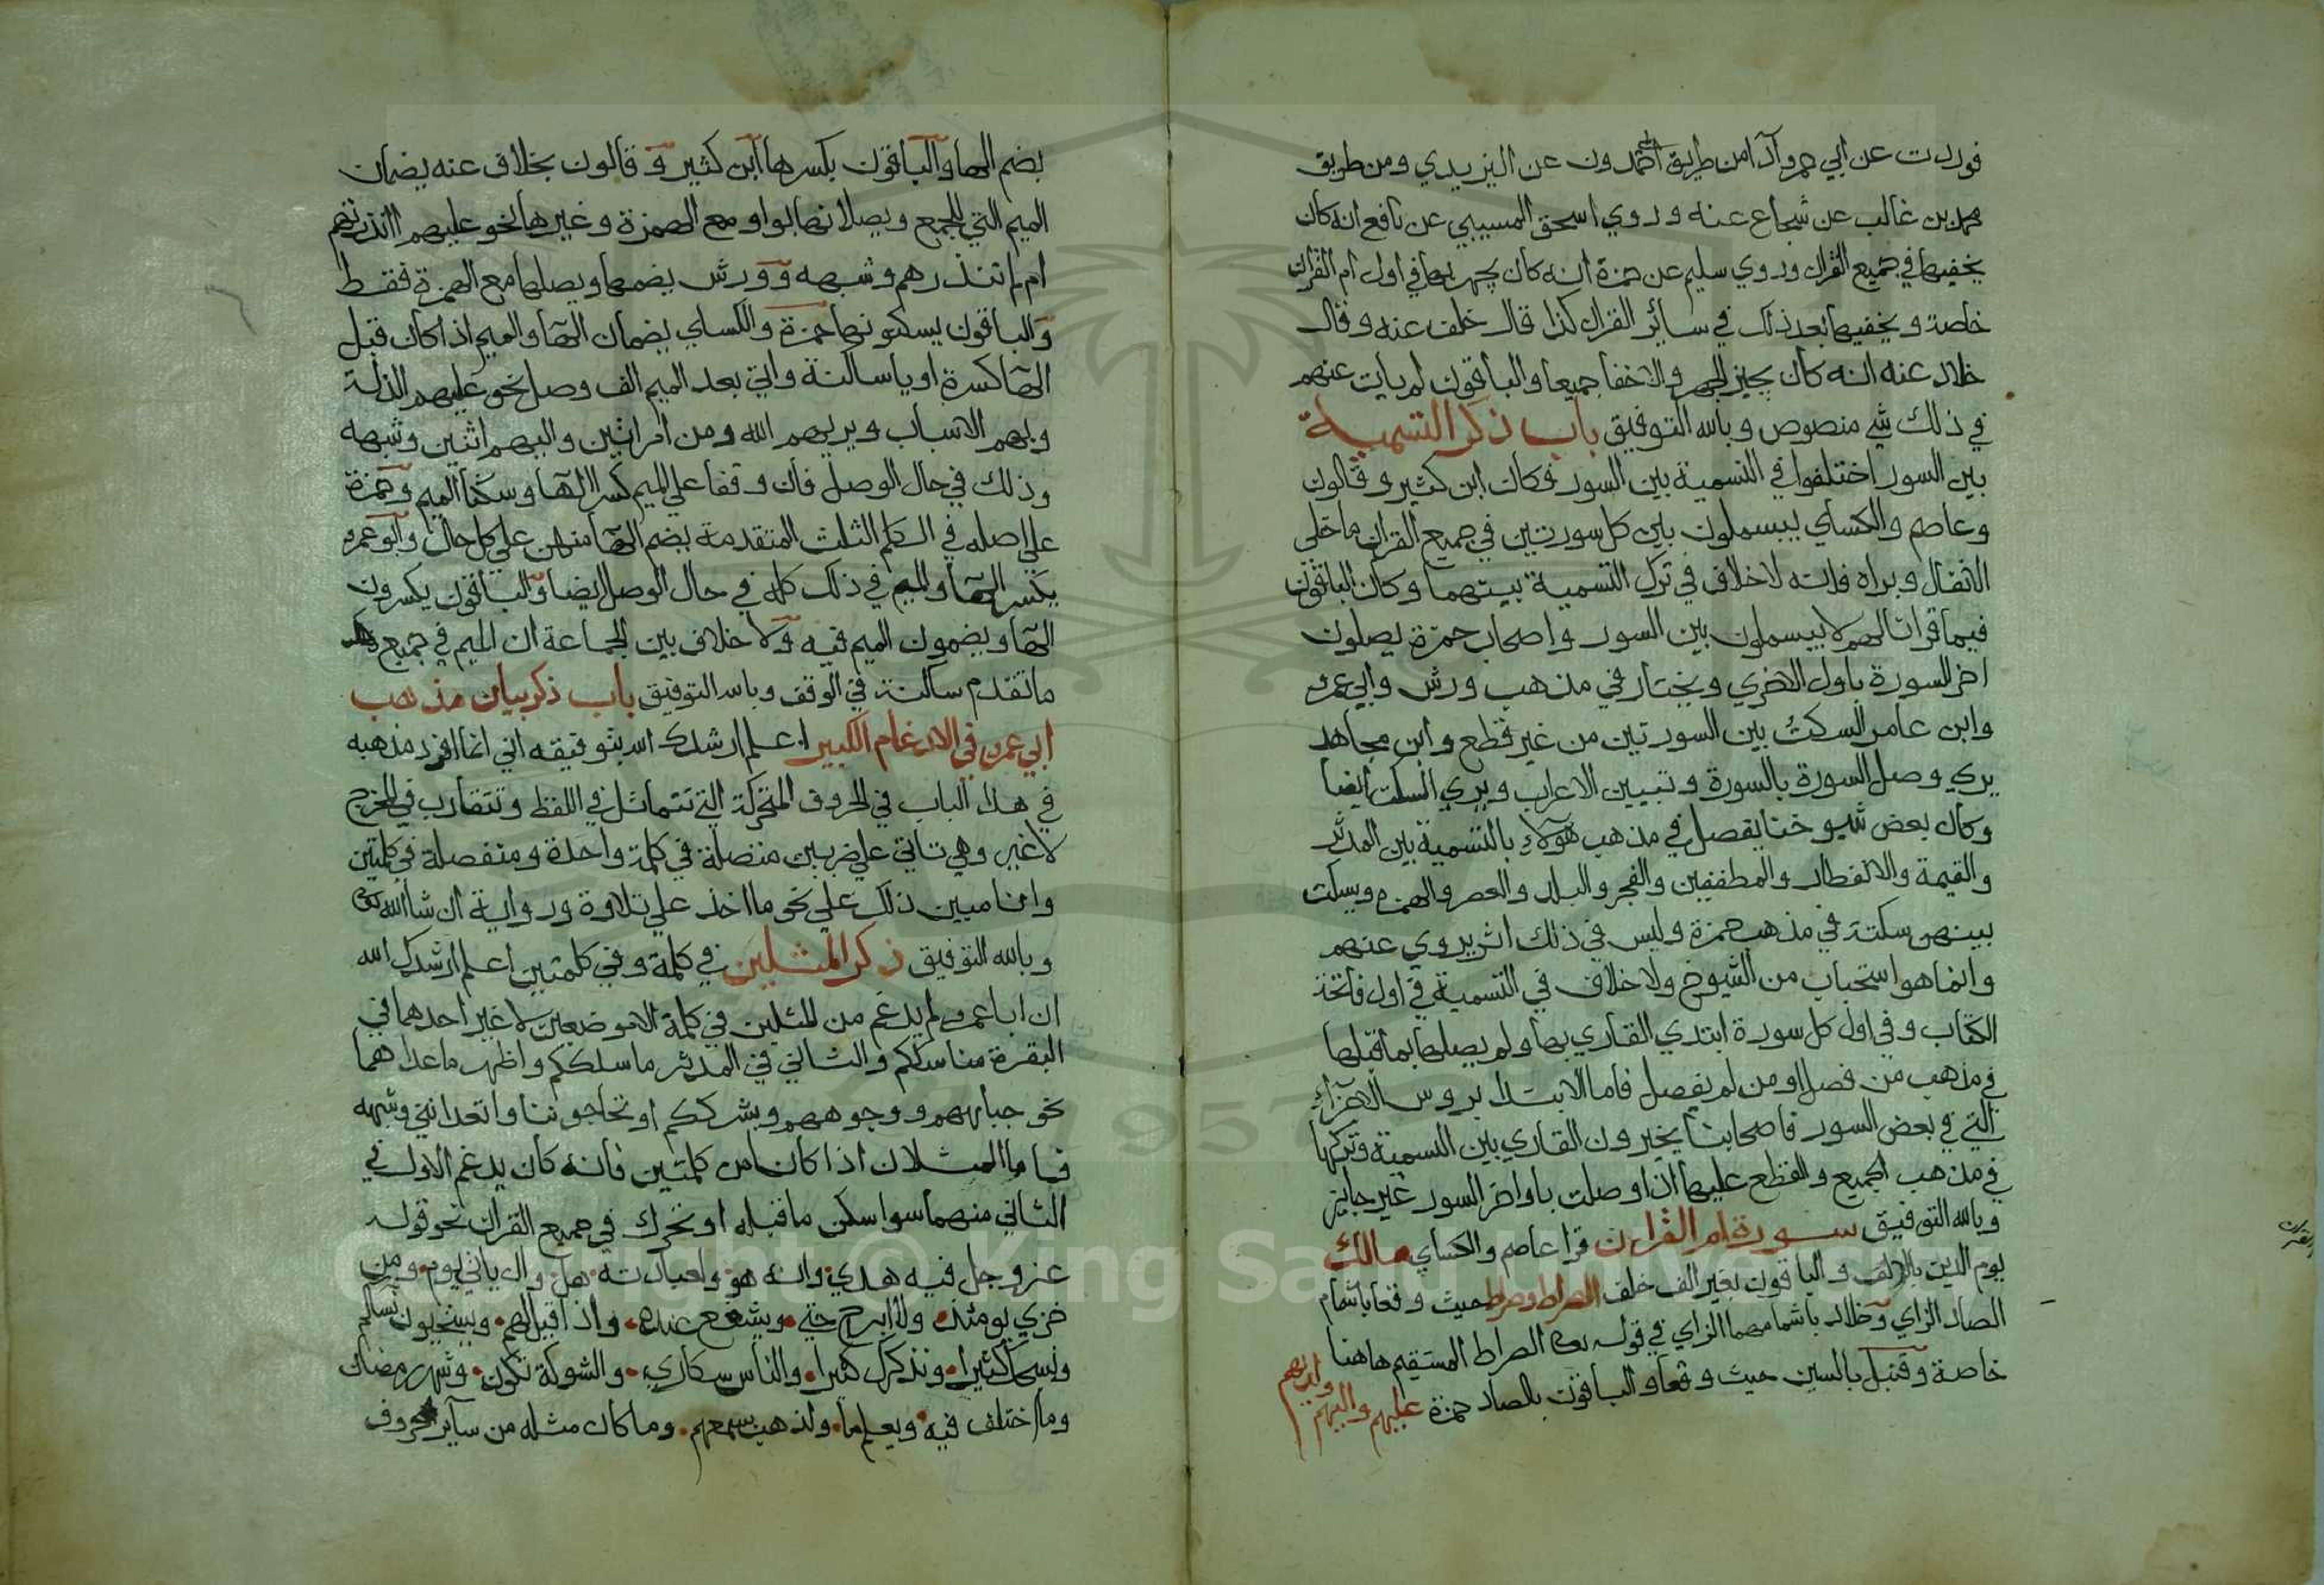 فوردت عن ابي عمرو اداء من طريق ابي حمدون عن اليزيدي ومن طريق
محمد بن غالب عن شجاع عنه وروي اسحق المسيبي عن نافع انه كان
يخفيها في جميع القران وروي سليم عن حمزة انه كان يجهر بها في اول ام القران
خاصة ويخفيها بعد ذلك في سائر القران كذا قال خلف عنه وقال
خلاد عنه انه كان يجيز الجهر والاخفا جميعا والباقون لم يات عنهم
في ذلك شي منصوص وبالله التوفيق باب ذكر التسمية
بين السور اختلفوا في التسمية بين السور فكان ابن كثير وقالون
وعاصم والكساي يبسملون بين كل سورتين في جميع القران ما خلى
الانفال وبراه فانه لا خلاف في ترك التسمية بينهما وكان الباقون
فيما قرانا لهم لا يبسملون بين السور واصحاب حمزة يصلون
اخر السورة باول الاخري ويختار في مذهب ورش وابي عمرو
وابن عامر السكت بين السورتين من غير قطع وابن مجاهد
يري وصل السورة بالسورة وتبيين الاعراب ويري السكت ايضا
وكان بعض شيوخنا يفصل في مذهب هولاء بالتسمية بين المدثر
والقيمة والانفطار والمطففين والفجر والبلد والعصر والهمزة ويسكت
بينهن سكتة في مذهب حمزة وليس في ذلك اثر يروي عنهم
وانما هو استحباب من الشيوخ ولا خلاف في التسمية في اول فاتحة
الكتاب وفي اول كل سورة ابتدي القاري بها ولم يصلها بما قبلها
في مذهب من فصل او من لم يفصل فاما الابتدا بروس الاجزاء
التي في بعض السور فاصحابنا يخيرون القاري بين التسمية وتركها
في مذهب الجميع والقطع عليها اذا وصلت باواخر السور غير جايز
وبالله التوفيق سورة ام القران قرا عاصم والكساي مالك
يوم الدين بالالف والباقون بغير الف خلف الصراط وصراط حيث وقعا باشمام
الصاد الزاي وخلاد باشمامهما الزاي في قوله الصراط المستقيم هاهنا
خاصة وقنبل بالسين حيث وقعا والباقون بالصاد حمزة عليهم واليهم ولديهم
بضم الها والباقون بكسرها ابن كثير وقالون بخلاف عنه يضمان
الميم التي للجمع ويصلانها بواو مع الهمزة وغيرها نحو عليهم اانذرتهم
ام لم تنذرهم وشبهه وورش يضمها ويصلها مع الهمزة فقط
والباقون يسكنونها حمزة والكساي يضمان الها والميم اذا كان قبل
الها كسرة او يا ساكنة واتي بعد الميم الف وصل نحو عليهم الذلة
وبهم الاسباب ويريهم الله ومن امراتين واليهم اثنين وشبهه
وذلك في حال الوصل فان وقفا علي الميم كسرا الها وسكنا الميم وحمزة
علي اصله في الكلم الثلث المتقدمة بضم الها منهن علي كل حال وابو عمرو
يكسر الها والميم في ذلك كله في حال الوصل ايضا والباقون يكسرون
الها ويضمون الميم فيه ولا خلاف بين الجماعة ان الميم في جميع
ما تقدم ساكنة في الوقف وبالله التوفيق باب ذكر بيان مذهب
ابي عمرو في الادغام الكبير اعلم ارشدك الله بتوفيقه اني انما افرد مذهبه
في هذا الباب في الحروف المتحركة التي تتماثل في اللفظ وتتقارب في المخرج
لا غير وهي تاتي علي ضربين متصلة في كلمة واحدة ومنفصلة في كلمتين
وانا مبين ذلك علي نحو ما اخذ علي تلاوة ورواية ان شا الله تعالى
وبالله التوفيق ذكر المثلين في كلمة وفي كلمتين اعلم ارشدك الله
ان ابا عمرو لم يدغم من المثلين في كلمة الا موضعين لا غير احدهما في
البقرة مناسككم والثاني في المدثر ما سلككم واظهر ما عداهما
نحو جباههم ووجوههم وبشرككم اوتحاجوننا واتعدانني وشبهه
فاما المثلان اذا كانا من كلمتين فانه كان يدغم الاول في
الثاني منهما سوا سكن ما قبله او تحرك في جميع القران نحو قوله
عز وجل فيه هدي وانه هو ولعبادته هل وان ياتي يوم ومن
خزي يومئذ ولا ابرح حتي ويشفع عنده واذا قيل لهم ويستحيون نساكم
ونسبحك كثيرا ونذكرك كثيرا والناس سكاري والشوكة تكون وشهر رمضان
وما اختلف فيه ويعلم ما ولذهب بسمعهم وما كان مثله من ساير حروف